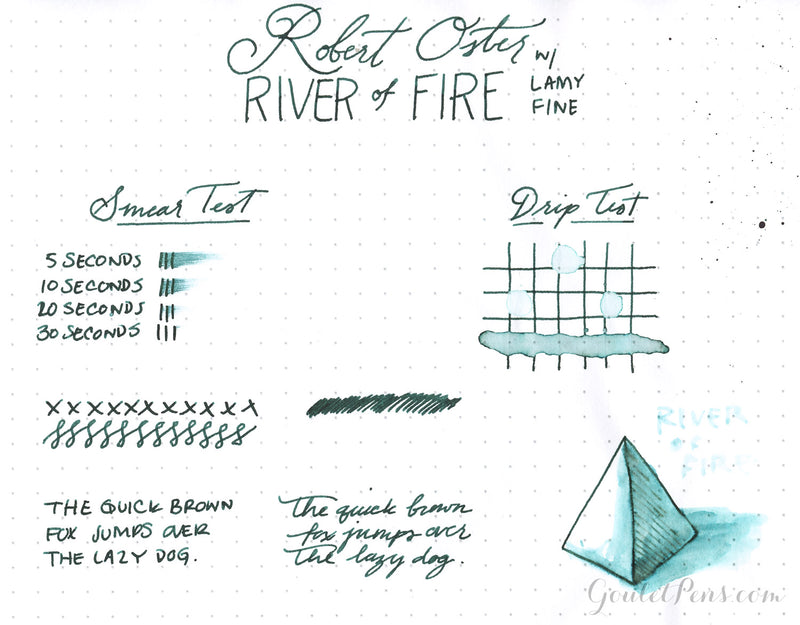 Robert Oster
RIVER of FIRE
w/
LAMY
FINE
Smear Test
5 SECONDS
10 SECONDS
20 SECONDS
30 SECONDS
Drip Test
xxxxxxxxxxx
THE QUICK BROWN
FOX JUMPS OVER
THE LAZY DOG.
The quick brown
fox jumps over
the lazy dog.
RIVER
of
FIRE
GouletPens.com